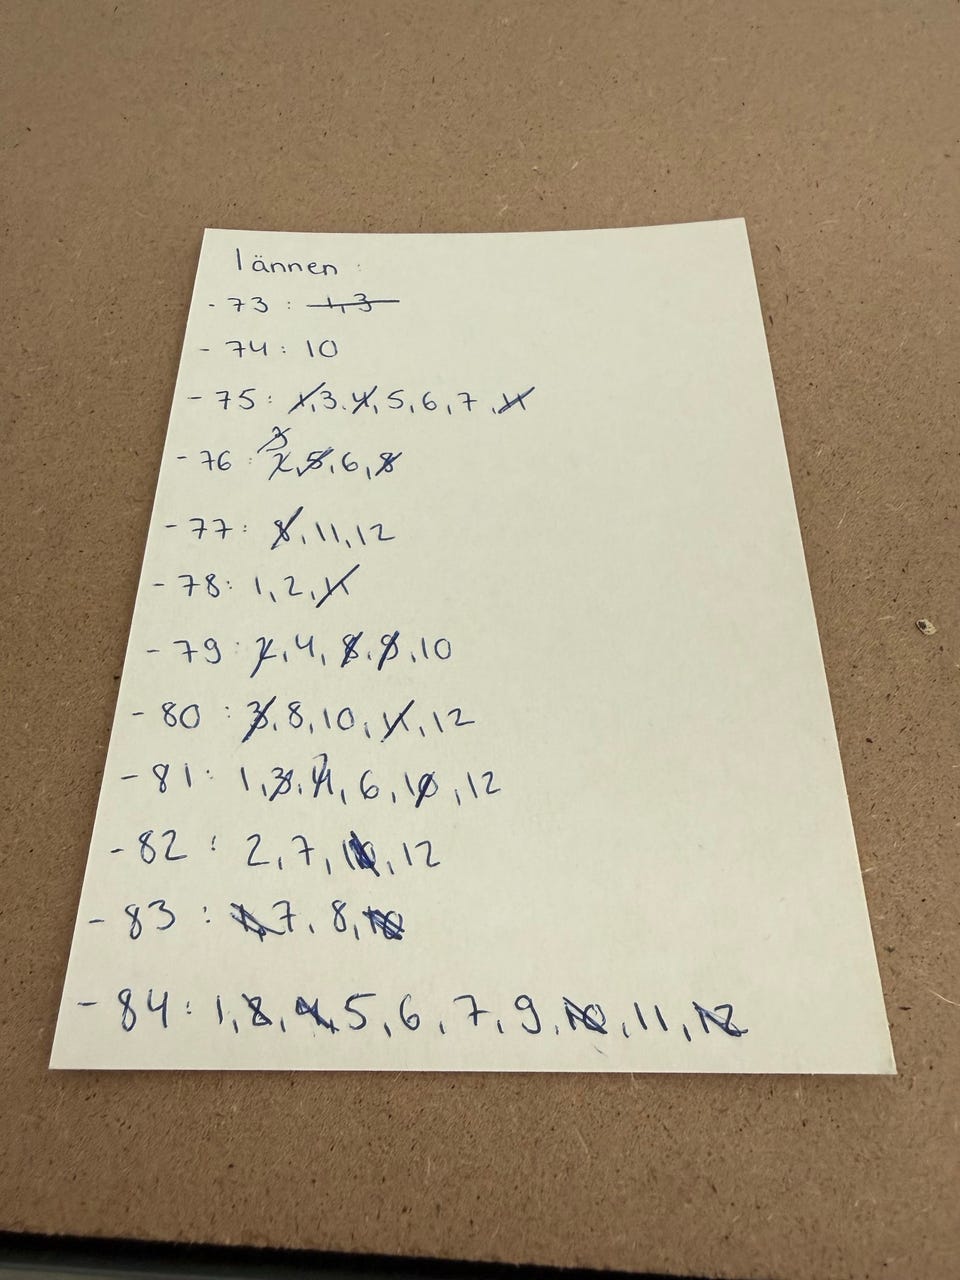 lännen :
- 73 : 1, 3
- 74 : 10
- 75 : 1, 3, 4, 5, 6, 7, 11
3
- 76 : 2, 5, 6, 8
- 77 : 8, 11, 12
- 78 : 1, 2, 11
- 79 : 2, 4, 8, 9, 10
- 80 : 3, 8, 10, 11, 12
- 81 : 1, 3, 4, 6, 10, 12
- 82 : 2, 7, 10, 12
- 83 : 7, 8, 10
- 84 : 1, 4, 5, 6, 7, 9, 10, 11, 12